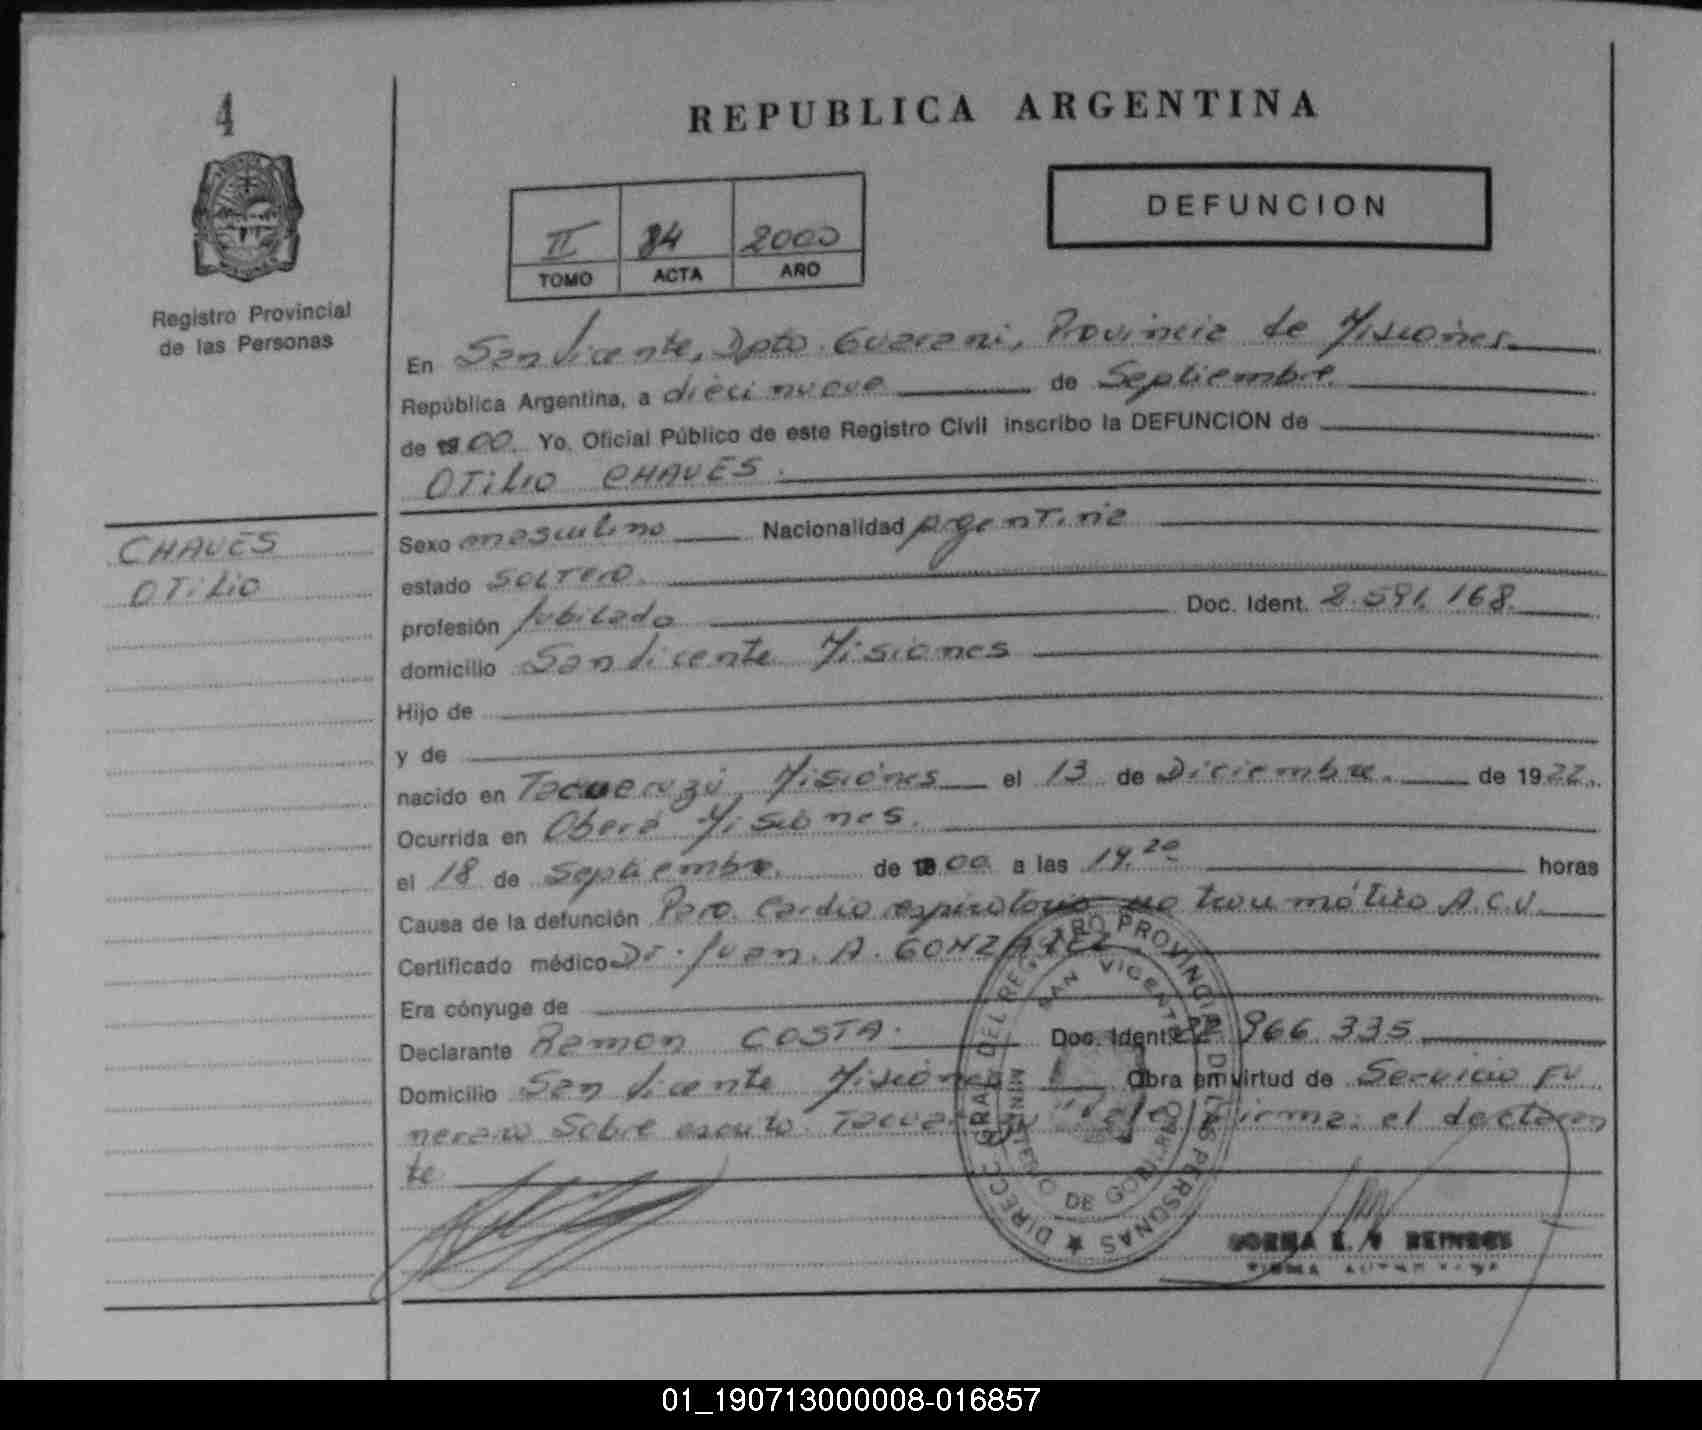 4
REPUBLICA ARGENTINA
DEFUNCION
II 84 2000
TOMO ACTA AÑO
Registro Provincial
de las Personas
En San Vicente, Dpto. Guarani, Provincia de Misiones.
República Argentina, a dieci nueve de Septiembre
de 19 00. Yo, Oficial Público de este Registro Civil inscribo la DEFUNCION de
OTILIO CHAVES.
CHAVES
OTILIO
Sexo masculino Nacionalidad Argentina
estado SOLTERO.
profesión Jubilado Doc. Ident. 2.591.168.
domicilio San Vicente Misiones
Hijo de
y de
nacido en Tacuaruzú, Misiones el 13 de Diciembre. de 1922.
Ocurrida en Oberá Misiones.
el 18 de Septiembre. de 19 00 a las 19.20 horas
Causa de la defunción Paro Cardio respiratorio no traumático A.C.V.
Certificado médico Dr. Juan. A. GONZALEZ
Era cónyuge de
Declarante Ramon COSTA. Doc. Ident. 22 966 335
Domicilio San Vicente Misiones Obra en virtud de Servicio fu
nerario Sobre escrito: Tacuaruzú Vale/ Firma: el declaran
te
DIRECC. GRAL. DEL REGISTRO PROVINCIAL DE LAS PERSONAS
SAN VICENTE
MINISTERIO DE GOBIERNO
01_190713000008-016857